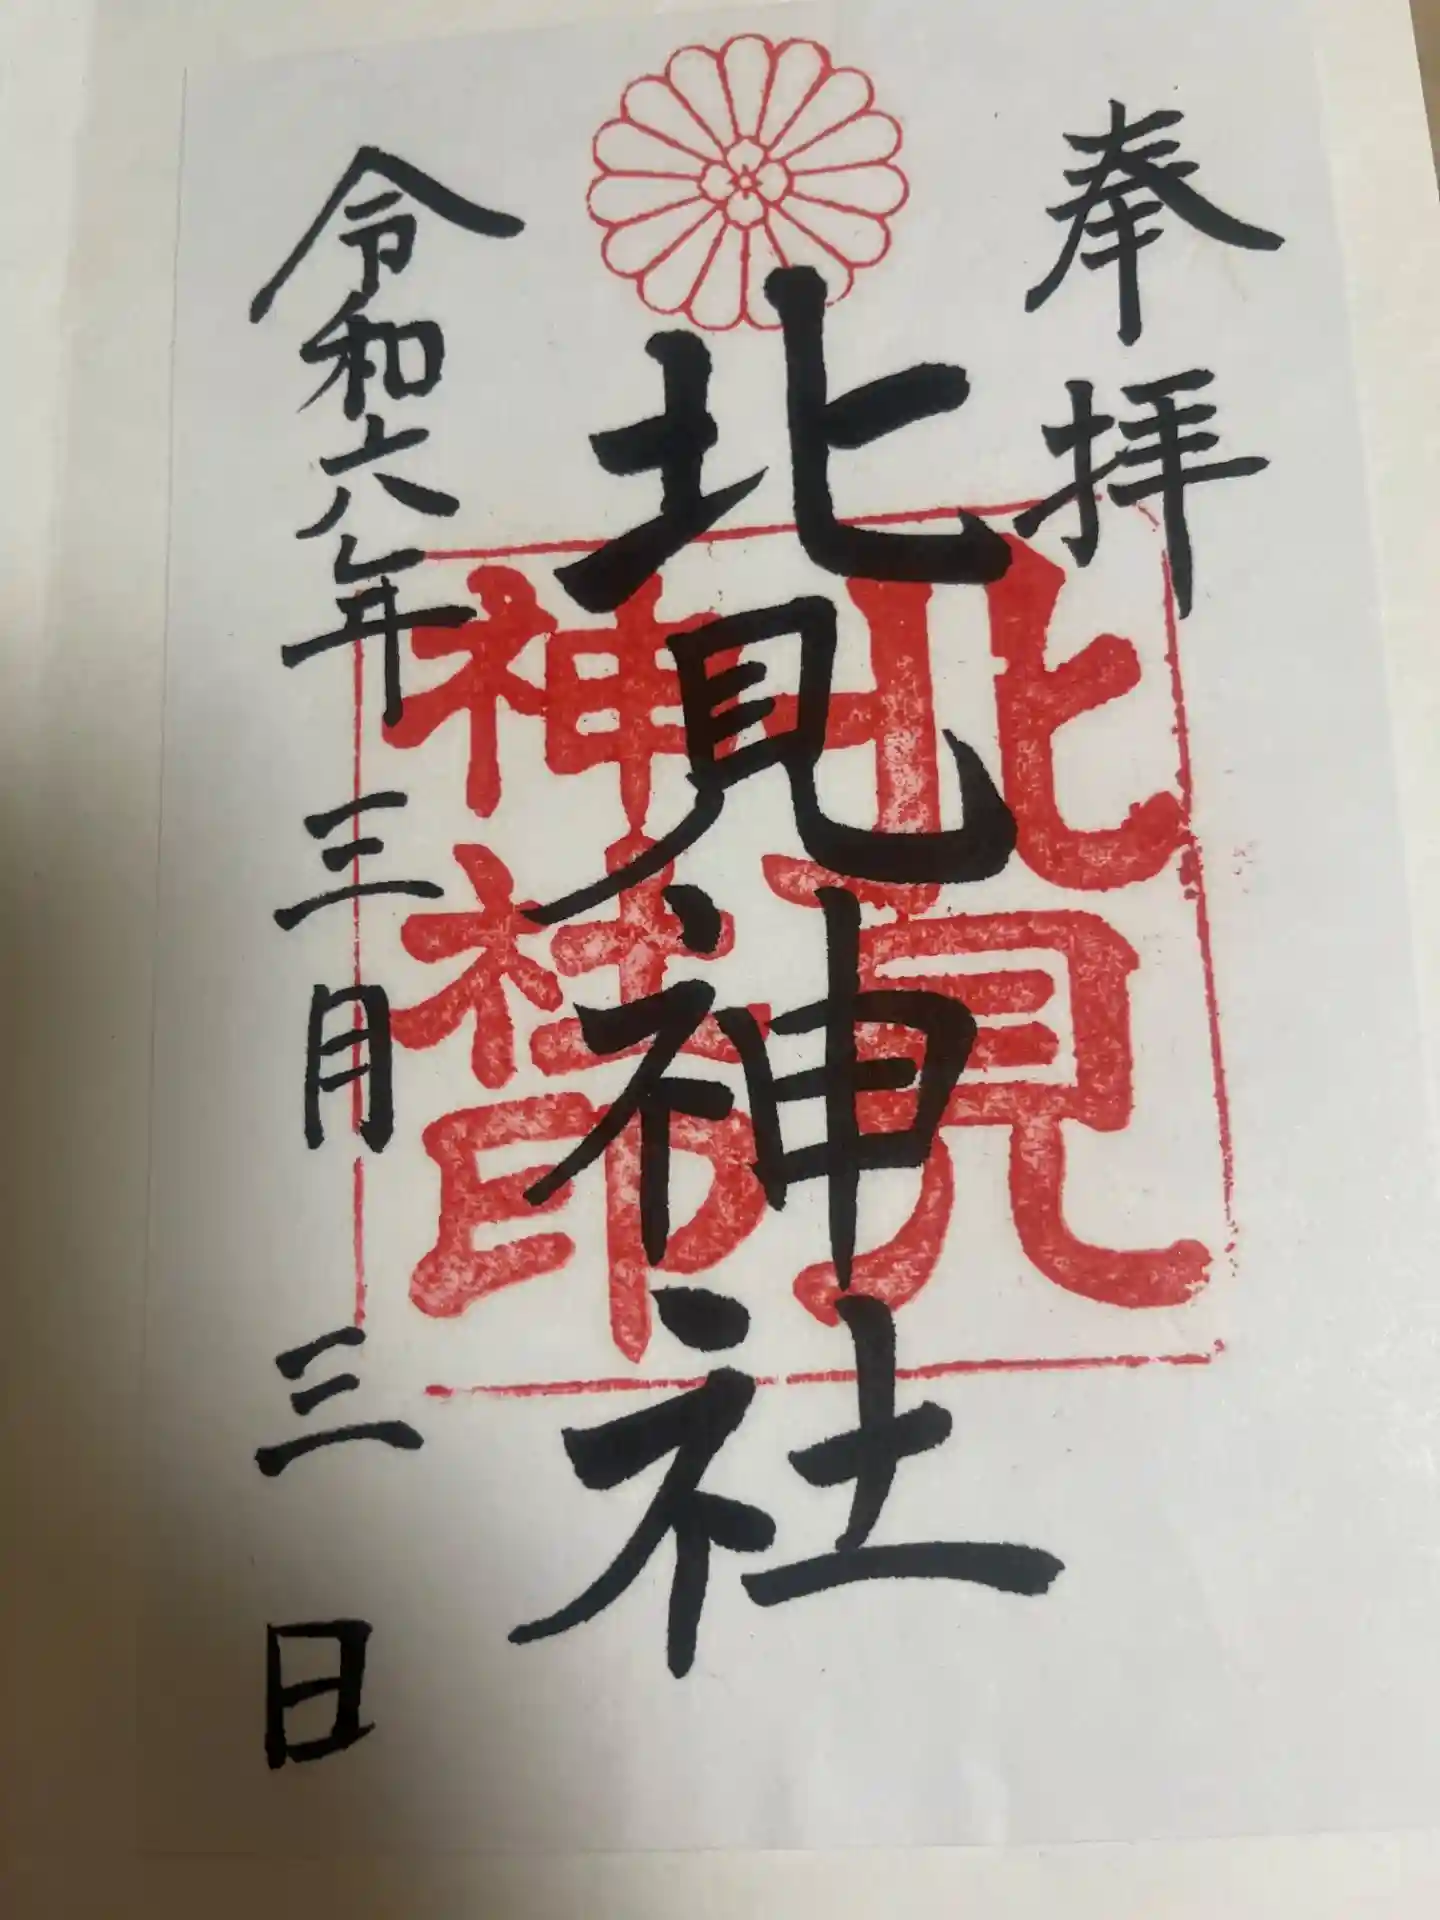 奉拝
北見神社
北見
神社印
令和六年三月三日